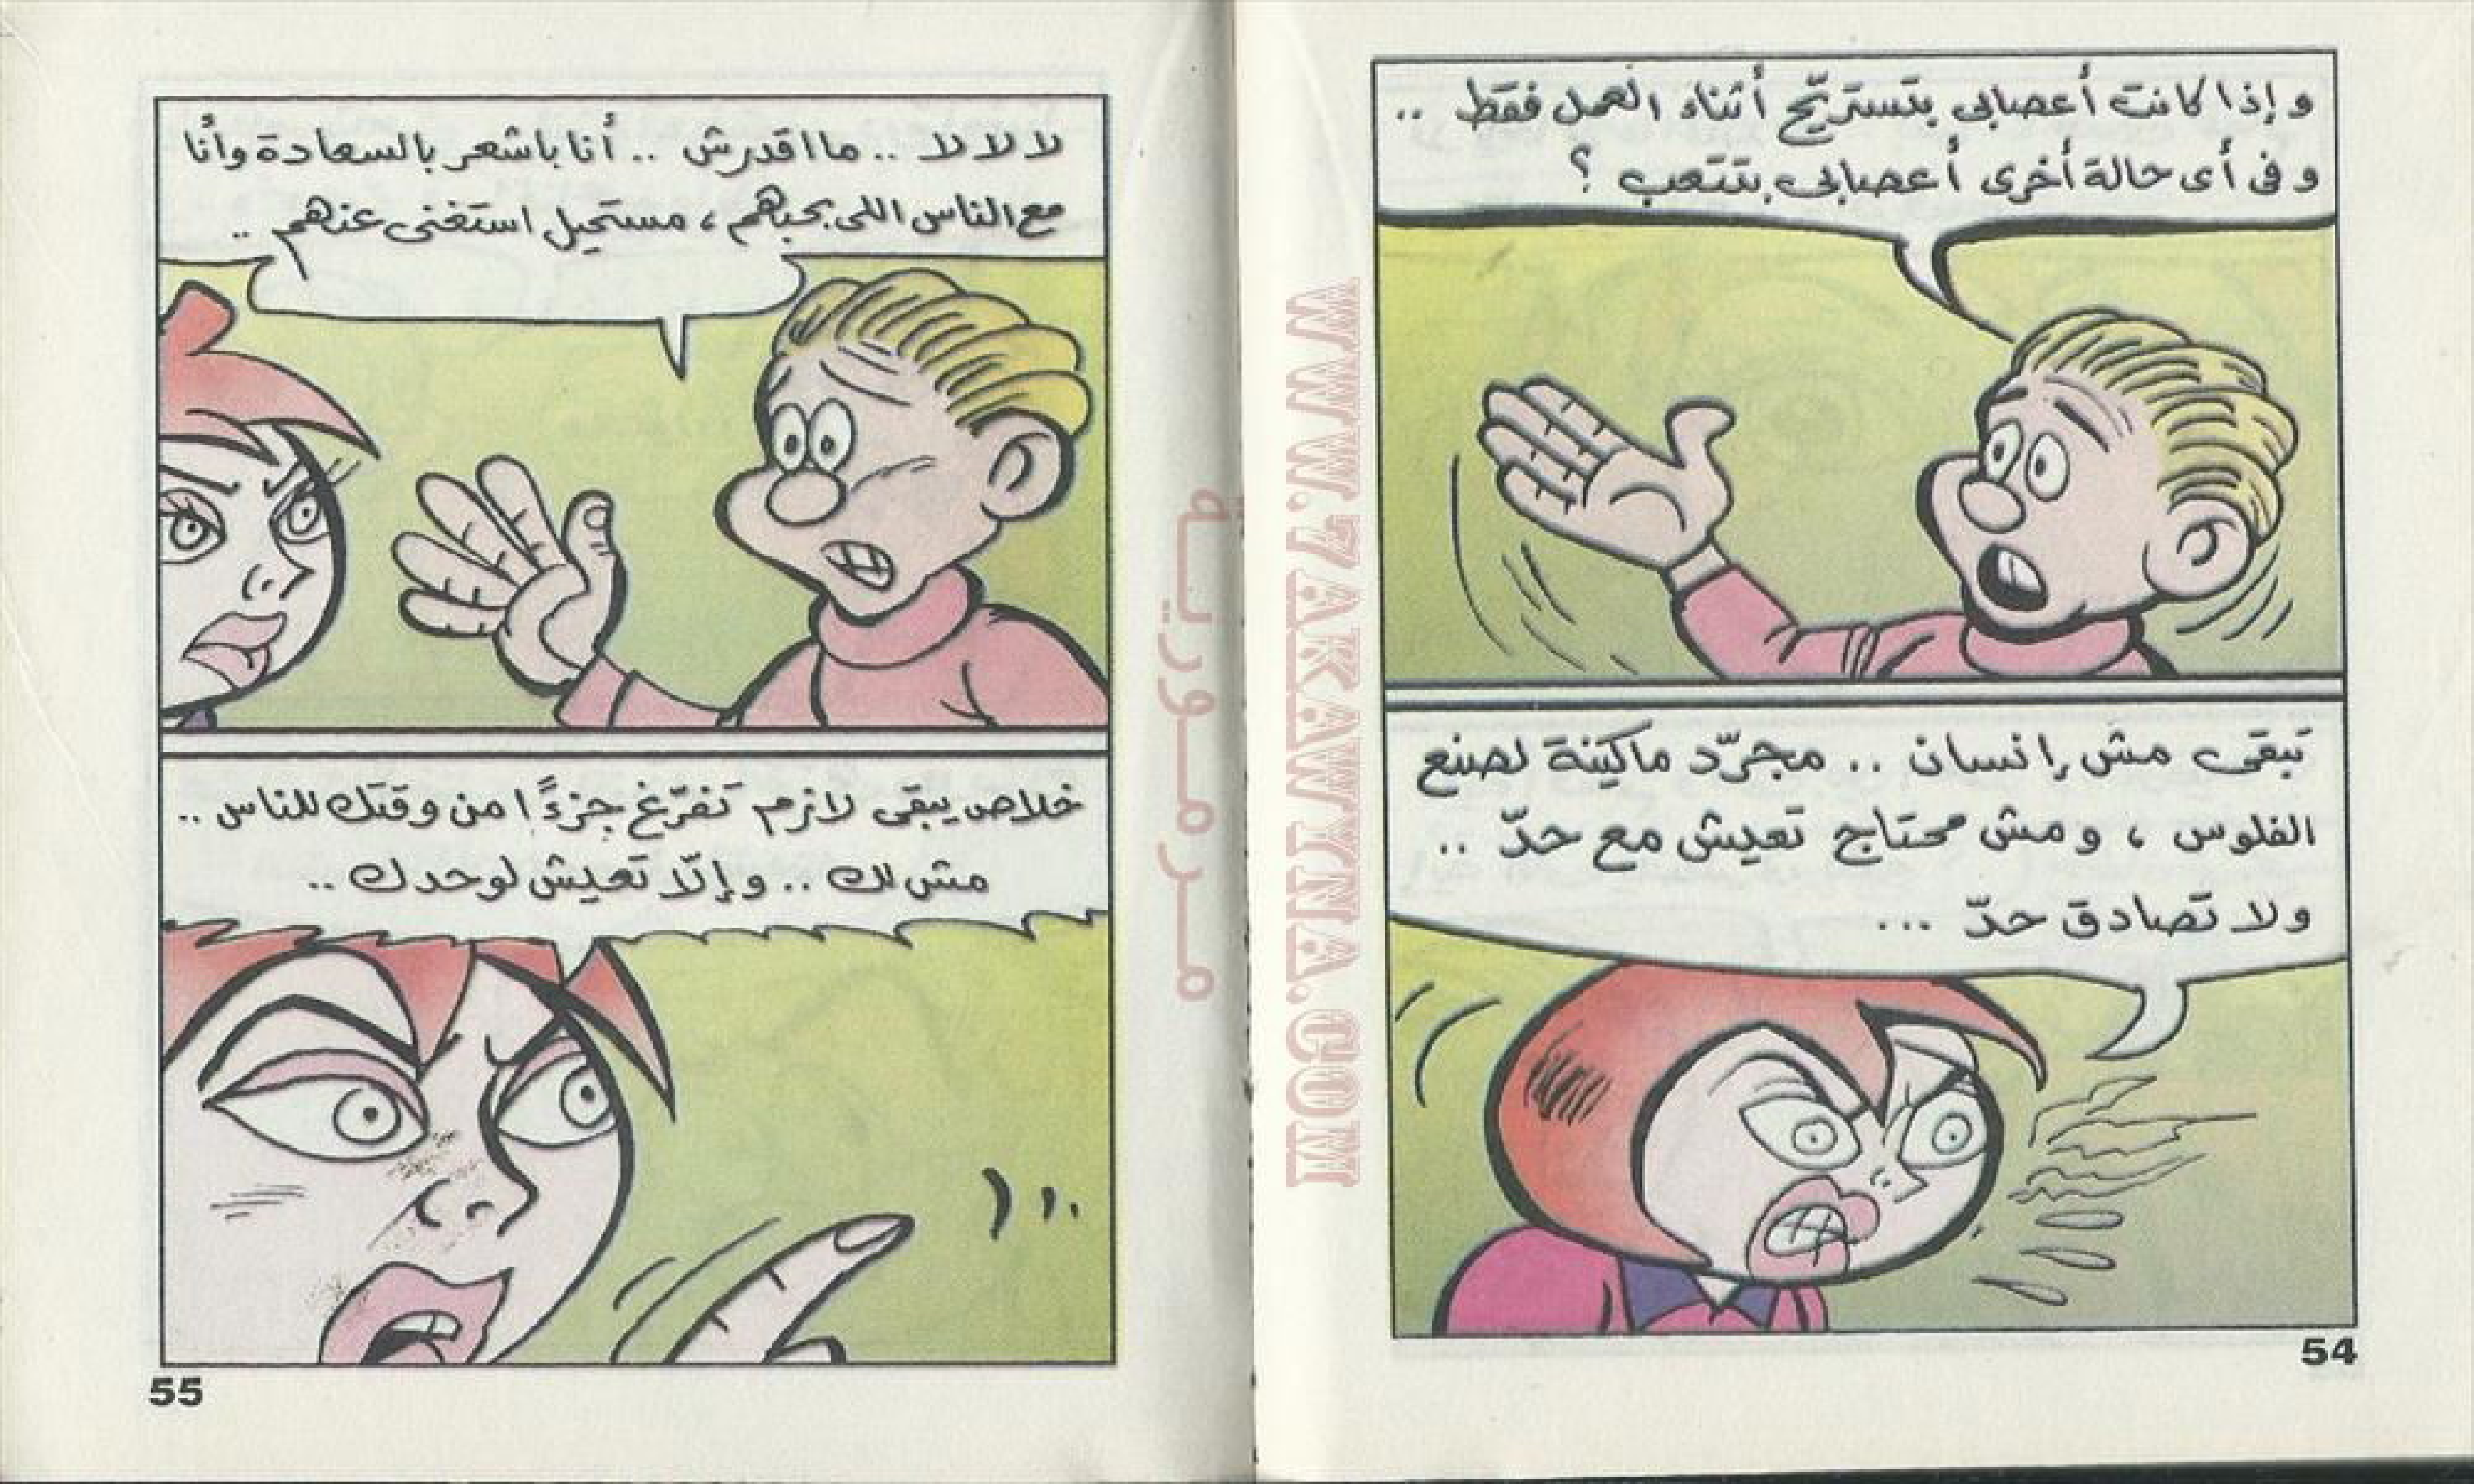 وإذا كانت أعصابى بتستريّح أثناء العمل فقط ..
وفى أى حالة أخرى أعصابى بتتعب ؟
تبقى مش إنسان .. مجرّد ماكينة لصنع
الفلوس ، ومش محتاج تعيش مع حدّ ..
ولا تصادق حدّ ...
54
WWW.7AKAWYNA.COM
مرمورية
لا لا لا .. ما اقدرش .. أنا باشعر بالسعادة وأنا
مع الناس اللى بحبّاهم ، مستحيل استغنى عنهم ..
خلاص يبقى لازم تفرّغ جزءًا من وقتك للناس ..
مش لك .. وإلّا تعيش لوحدك ..
55